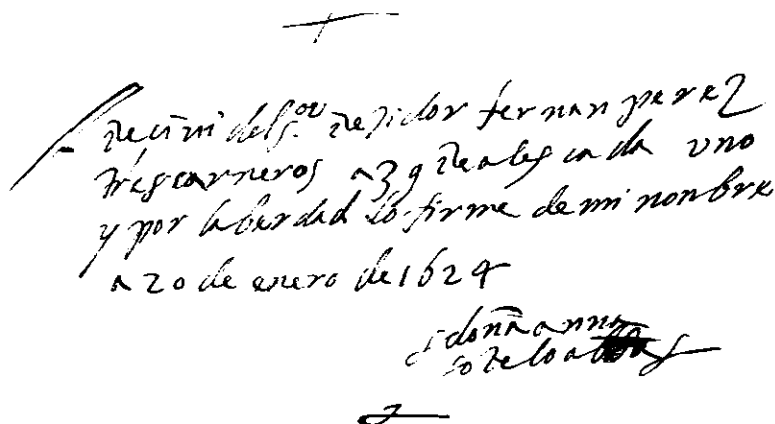 recivi del s.or rejidor fernan perez
tres carneros a 39 reales cada uno
y por la berdad lo firme de mi nonbre
a 20 de enero de 1624
doña anna
sotelo